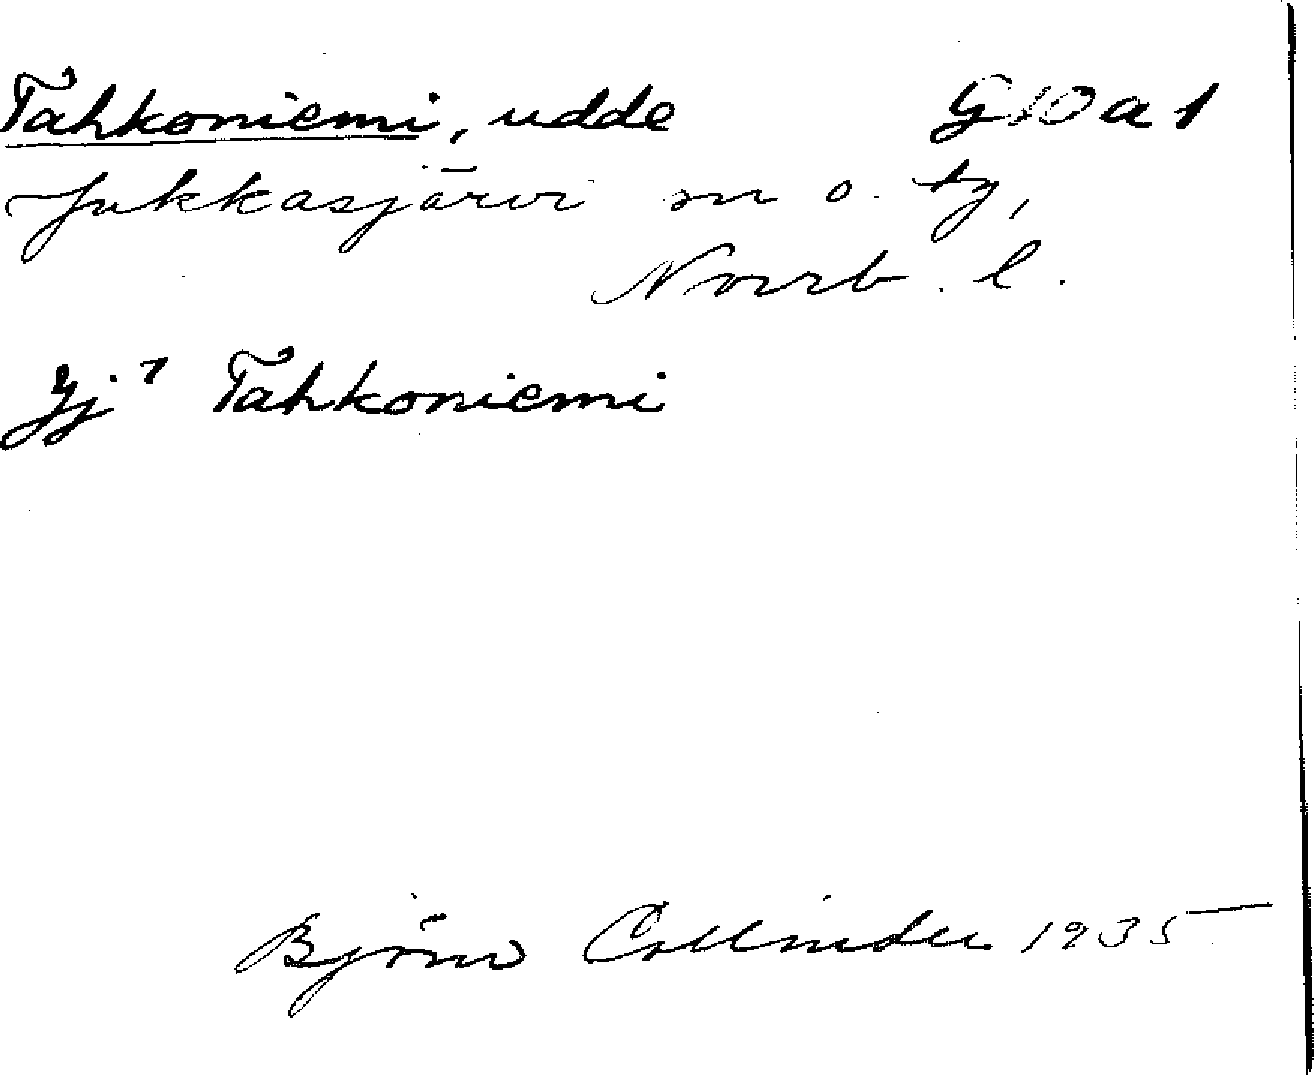 Tahkoniemi, udde G10a1
Jukkasjärvi sn o. tg,
Norrb. l.
Jj 1 Tahkoniemi
Björn Collinder 1935